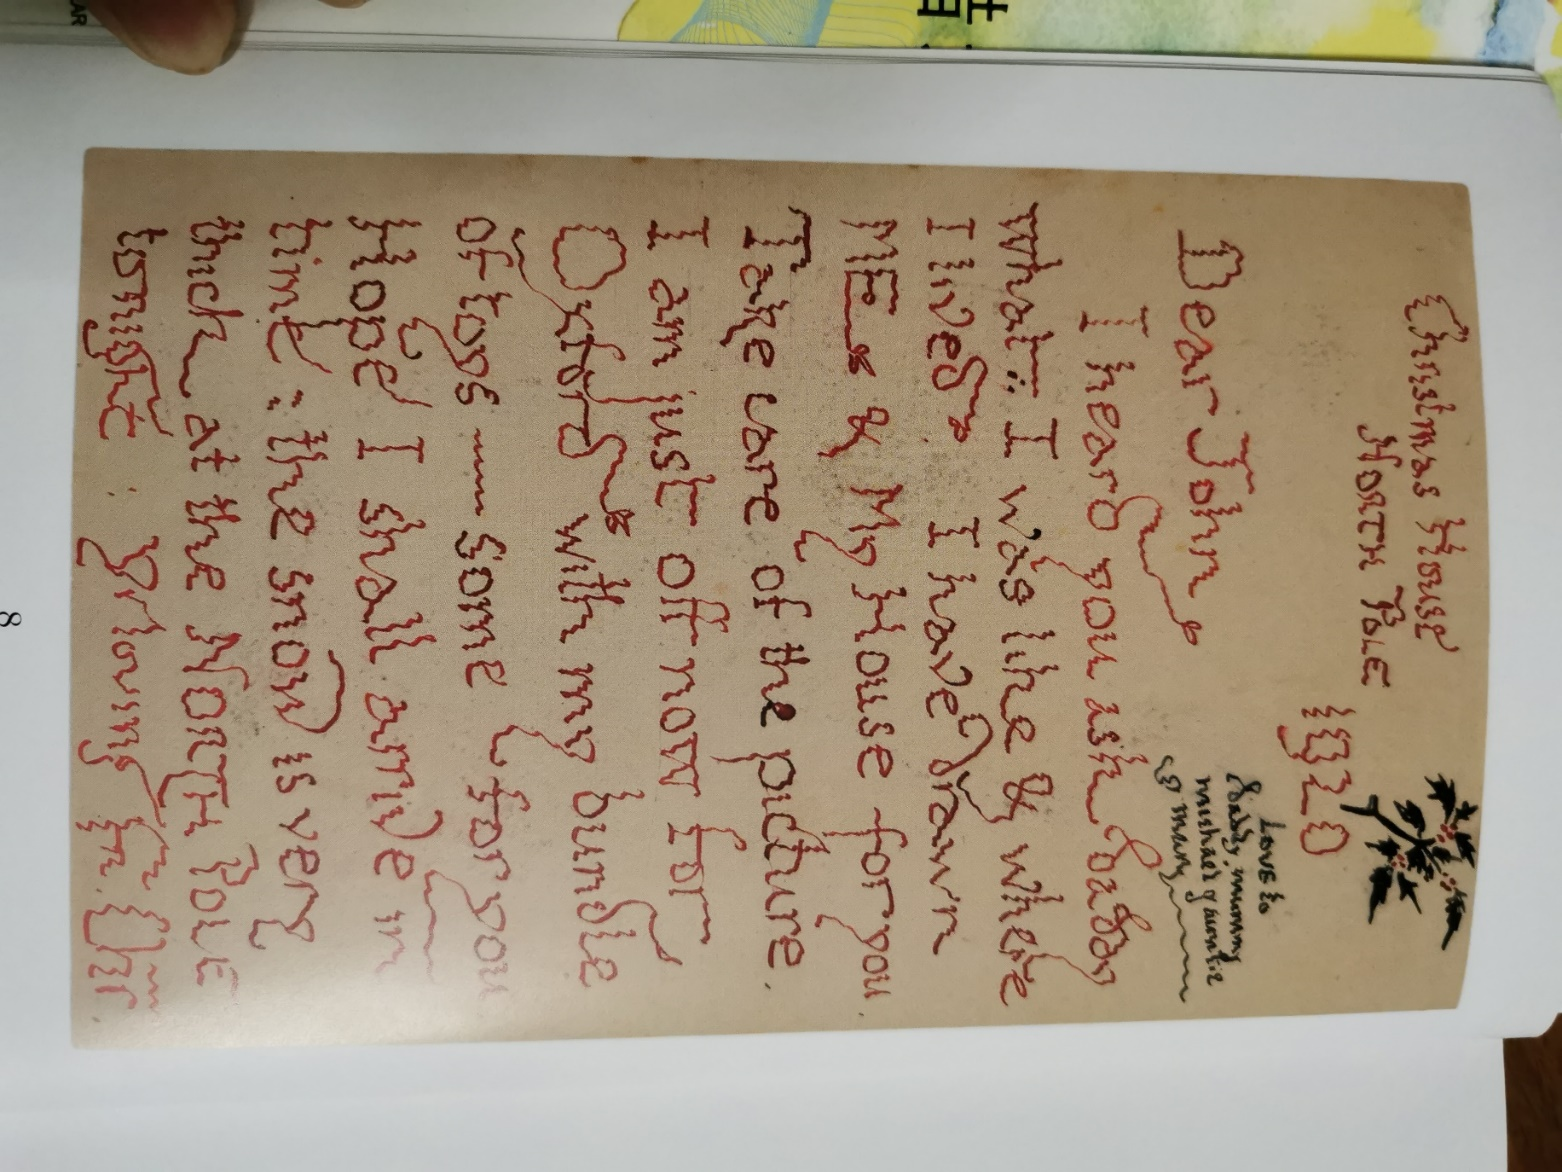 Christmas House
NORTH POLE
1920
Love to
daddy, mummy
michael & auntie
& mary
Dear John
I heard you ask daddy
what I was like & where
I lived. I have drawn
ME & My House for you
Take care of the picture.
I am just off now for
Oxford with my bundle
of toys — some for you
Hope I shall arrive in
time : the snow is very
thick at the NORTH POLE
tonight : Yr loving Fr. Chr.
8